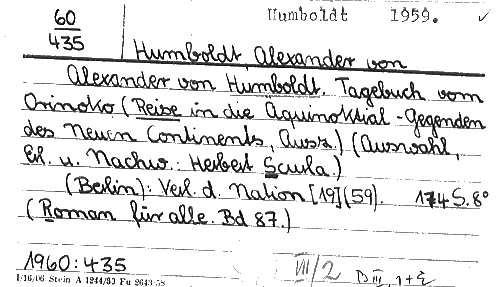 60
435
Humboldt 1959. ✓
Humboldt, Alexander von
Alexander von Humboldt. Tagebuch vom
Orinoko (Reise in die Äquinoktial-Gegenden
des Neuen Continents, Ausz.) (Auswahl,
Erl. u. Nachw.: Herbert Scurla.)
(Berlin): Verl. d. Nation [19](59). 174 S. 8°
(Roman für alle. Bd 87.)
1960:435
VIII/2 D III, 1+2
I/16/06 Stein A 1244/83 Fu 2643 58